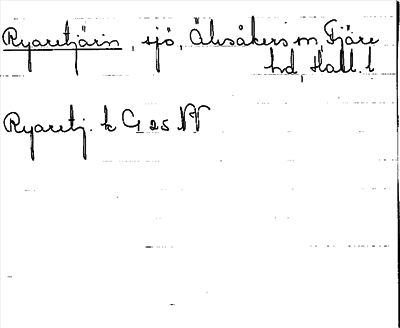 Ryaretjärn, sjö, Älvsåkers sn, Fjäre
hd, Hall. l
Ryaretj. k G 25 NV